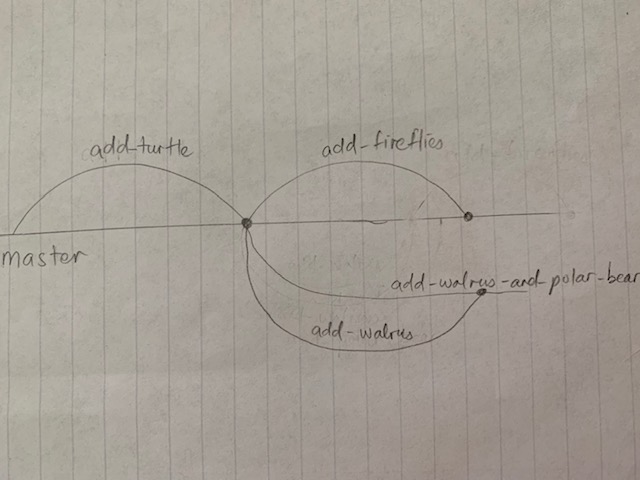 add-turtle
add-fireflies
master
add-walrus-and-polar-bear
add-walrus